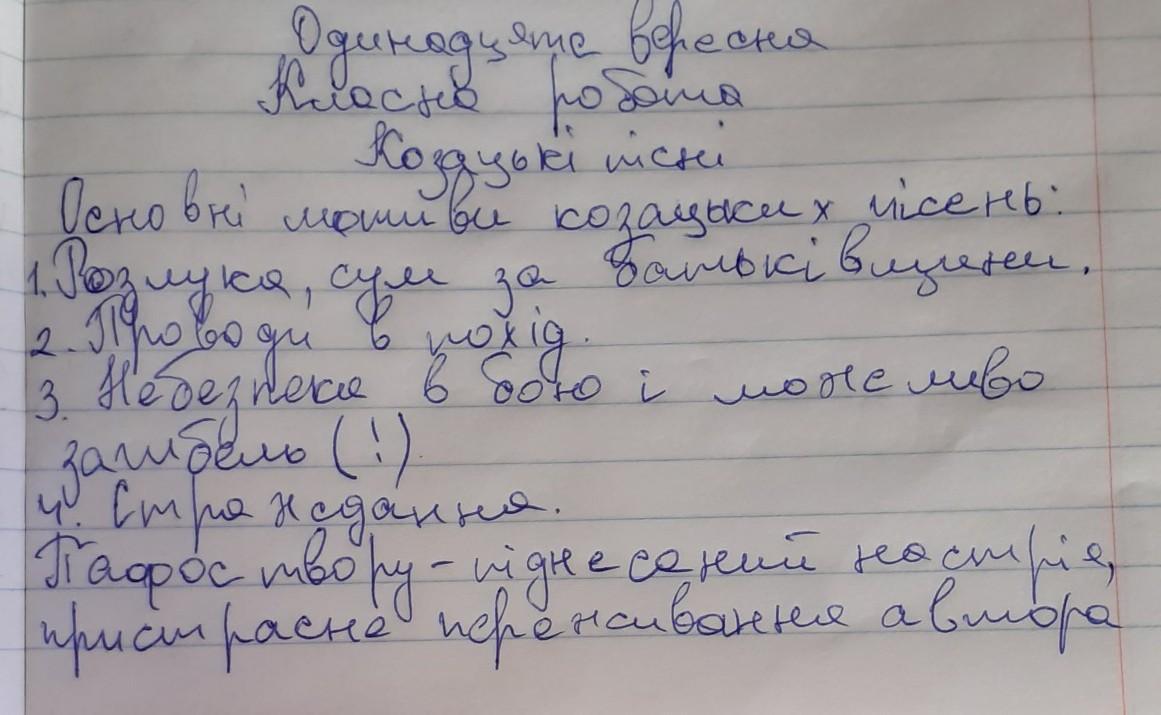 Одинадцяте вересня
Класна робота
Козацькі пісні
Основні мотиви козацьких пісень:
1. Розлука, сум за батьківщини.
2. Проводи в похід.
3. Небезпека в бою і можливо
загибель (!)
4. Страждання.
Пафос твору - піднесений настрій,
пристрасне переживання автора